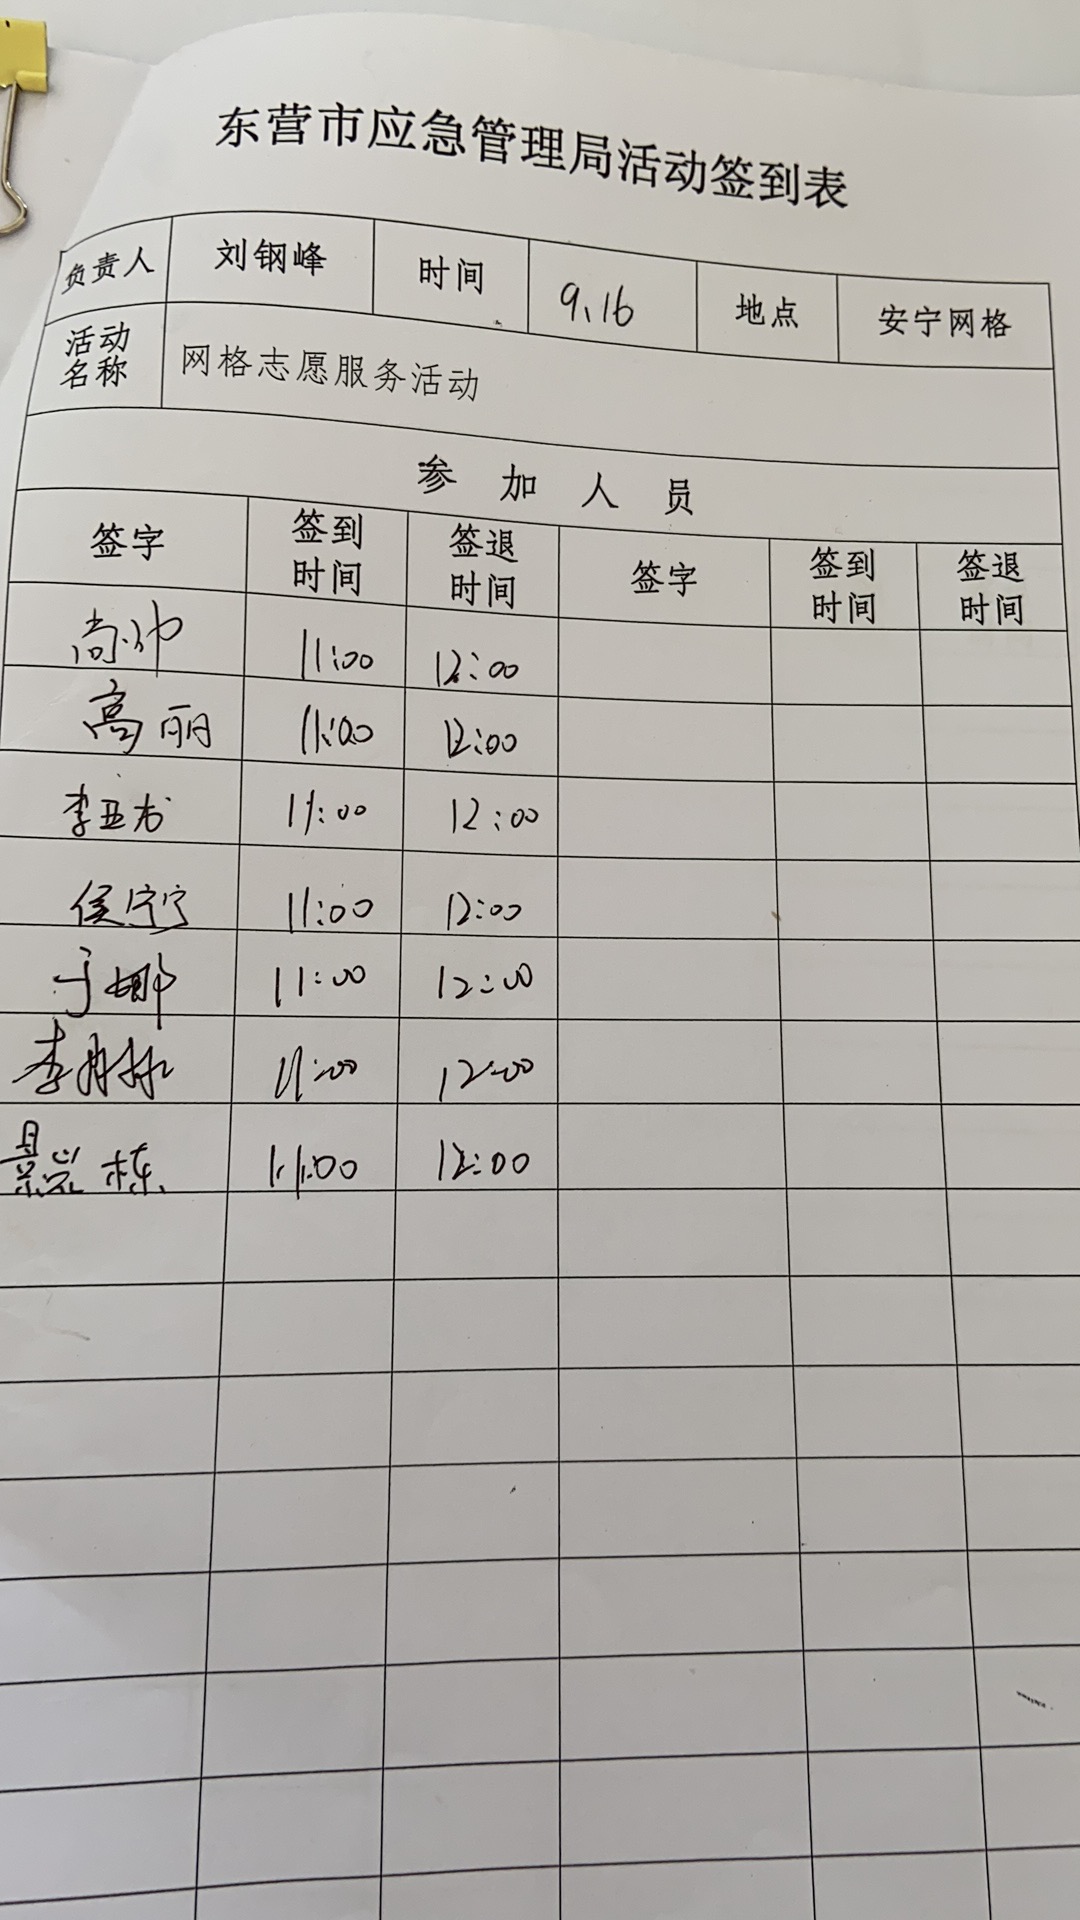 东营市应急管理局活动签到表
负责人 刘钢峰 时间 9.16 地点 安宁网格
活动名称 网格志愿服务活动
参加人员
签字 签到时间 签退时间 签字 签到时间 签退时间
尚帅 11:00 12:00
高丽 11:00 12:00
李亚 11:00 12:00
侯宁宁 11:00 12:00
于娜 11:00 12:00
李 11:00 12:00
景 栋 11:00 12:00